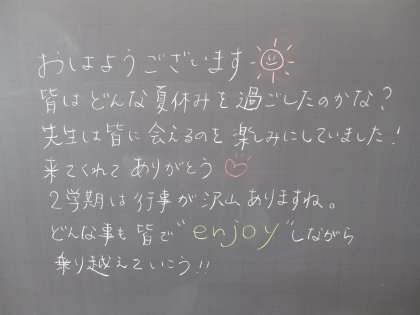 おはようございます
皆はどんな夏休みを過ごしたのかな?
先生は皆に会えるのを楽しみにしていました!
来てくれてありがとう
2学期は行事が沢山ありますね。
どんな事も皆で"enjoy"しながら
乗り越えていこう!!